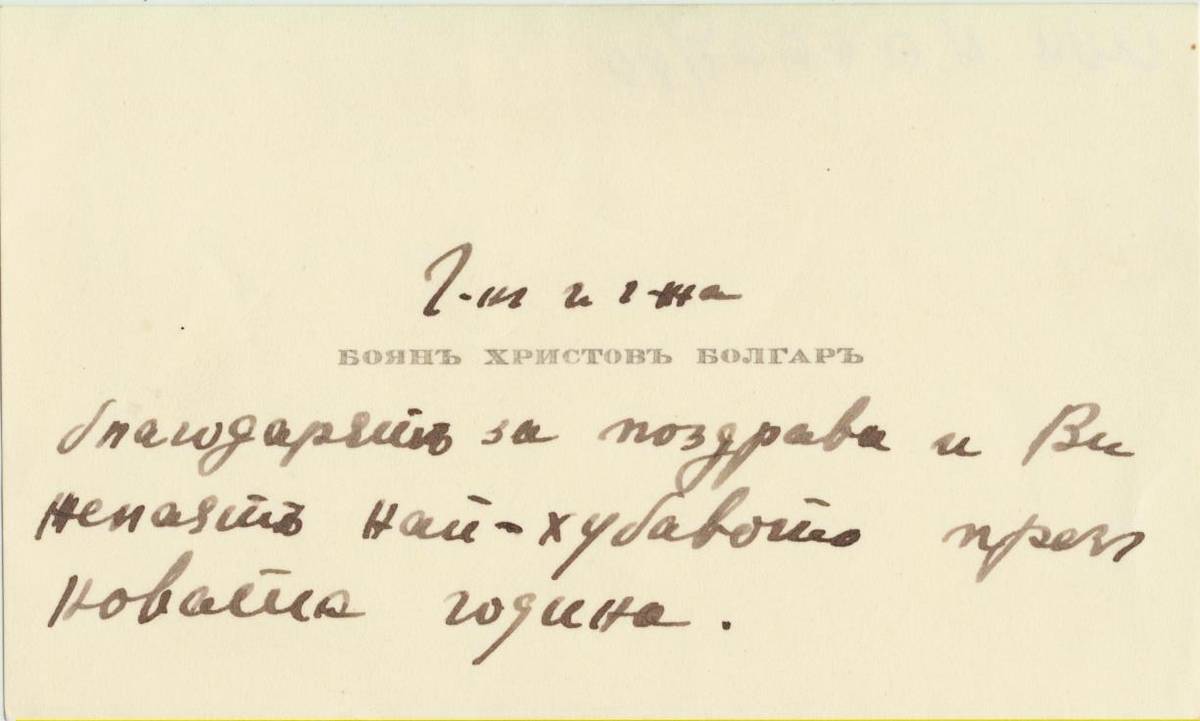 Г-нъ и г-жа
БОЯНЪ ХРИСТОВЪ БОЛГАРЪ
благодарятъ за поздрава и Ви
желаятъ най-хубавото презъ
новата година.